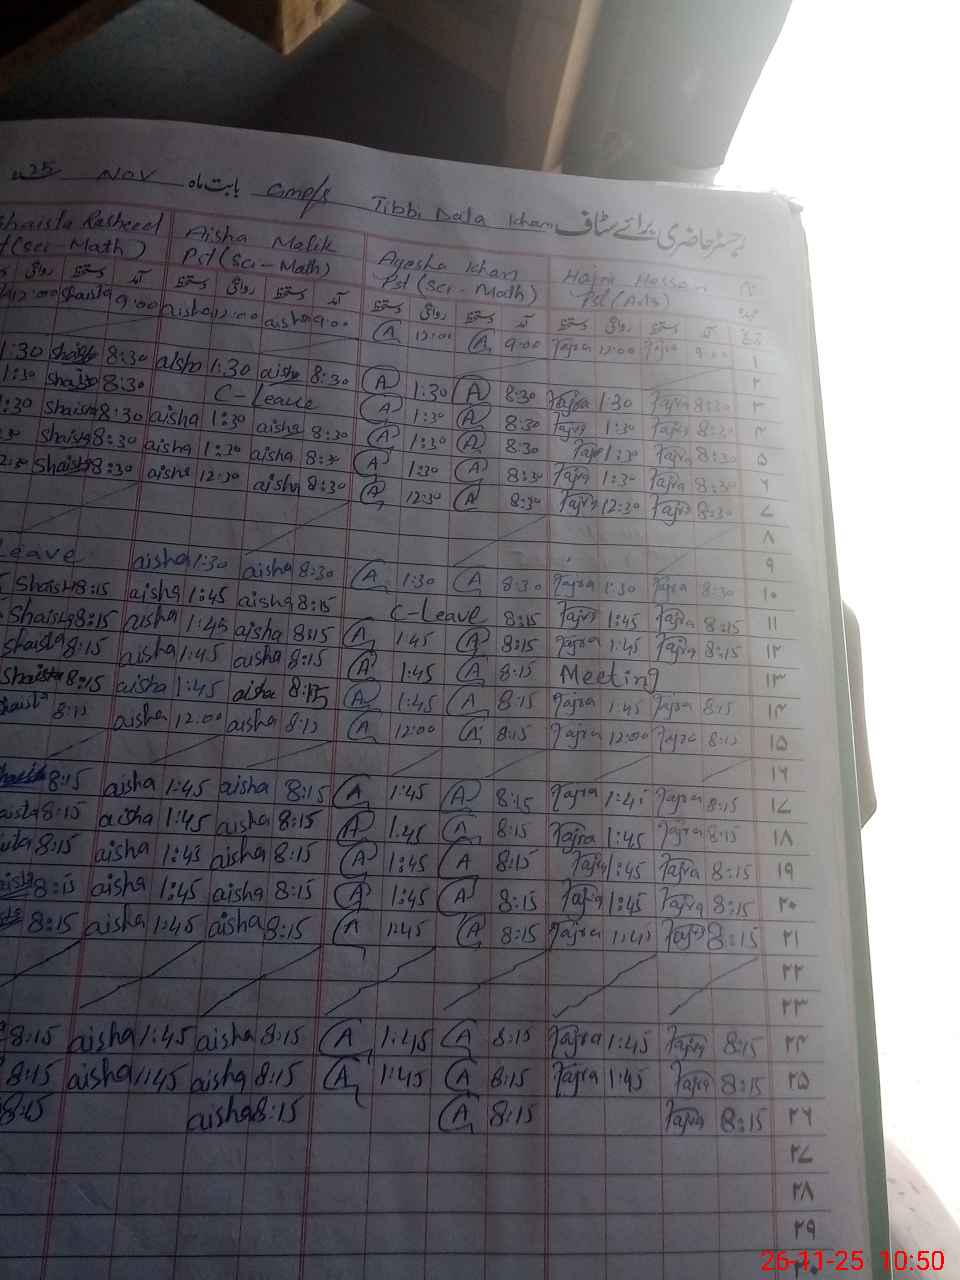 25 Nov بابت ماہ GMP/S Tibbi Data Khan رجسٹر حاضری برائے سٹاف
Shaista Rasheed Aisha Malik Ayesha Khan Hajra Hassan
(Sci-Math) Pst (Sci-Math) Pst (Sci-Math) Pst (Arts)
روانگی دستخط آمد دستخط روانگی دستخط آمد دستخط روانگی دستخط آمد دستخط روانگی دستخط آمد
12:00 Shaista 9:00 aisha 12:00 aisha 9:00 A 12:00 A 9:00 Hajra 12:00 Hajra 9:00 ۱
۲
1:30 Shaista 8:30 aisha 1:30 aisha 8:30 A 1:30 A 8:30 Hajra 1:30 Hajra 8:30 ۳
1:30 Shaista 8:30 C-Leave A 1:30 A 8:30 Hajra 1:30 Hajra 8:30 ۴
1:30 Shaista 8:30 aisha 1:30 aisha 8:30 A 1:30 A 8:30 Hajra 1:30 Hajra 8:30 ۵
:30 Shaista 8:30 aisha 1:30 aisha 8:30 A 1:30 A 8:30 Hajra 1:30 Hajra 8:30 ۶
12:30 Shaista 8:30 aisha 12:30 aisha 8:30 A 12:30 A 8:30 Hajra 12:30 Hajra 8:30 ۷
۸
۹
Leave aisha 1:30 aisha 8:30 A 1:30 A 8:30 Hajra 1:30 Hajra 8:30 ۱۰
Shaista 8:15 aisha 1:45 aisha 8:15 C-Leave 8:15 Hajra 1:45 Hajra 8:15 ۱۱
Shaista 8:15 aisha 1:45 aisha 8:15 A 1:45 A 8:15 Hajra 1:45 Hajra 8:15 ۱۲
Shaista 8:15 aisha 1:45 aisha 8:15 A 1:45 A 8:15 Meeting ۱۳
Shaista 8:15 aisha 1:45 aisha 8:15 A 1:45 A 8:15 Hajra 1:45 Hajra 8:15 ۱۴
Shaista 8:15 aisha 12:00 aisha 8:15 A 12:00 A 8:15 Hajra 12:00 Hajra 8:15 ۱۵
۱۶
Shaista 8:15 aisha 1:45 aisha 8:15 A 1:45 A 8:15 Hajra 1:45 Hajra 8:15 ۱۷
aista 8:15 aisha 1:45 aisha 8:15 A 1:45 A 8:15 Hajra 1:45 Hajra 8:15 ۱۸
ista 8:15 aisha 1:45 aisha 8:15 A 1:45 A 8:15 Hajra 1:45 Hajra 8:15 ۱۹
8:15 aisha 1:45 aisha 8:15 A 1:45 A 8:15 Hajra 1:45 Hajra 8:15 ۲۰
8:15 aisha 1:45 aisha 8:15 A 1:45 A 8:15 Hajra 1:45 Hajra 8:15 ۲۱
۲۲
۲۳
8:15 aisha 1:45 aisha 8:15 A 1:45 A 8:15 Hajra 1:45 Hajra 8:15 ۲۴
8:15 aisha 1:45 aisha 8:15 A 1:45 A 8:15 Hajra 1:45 Hajra 8:15 ۲۵
8:15 aisha 8:15 A 8:15 Hajra 8:15 ۲۶
۲۷
۲۸
۲۹
۳۰
26-11-25 10:50